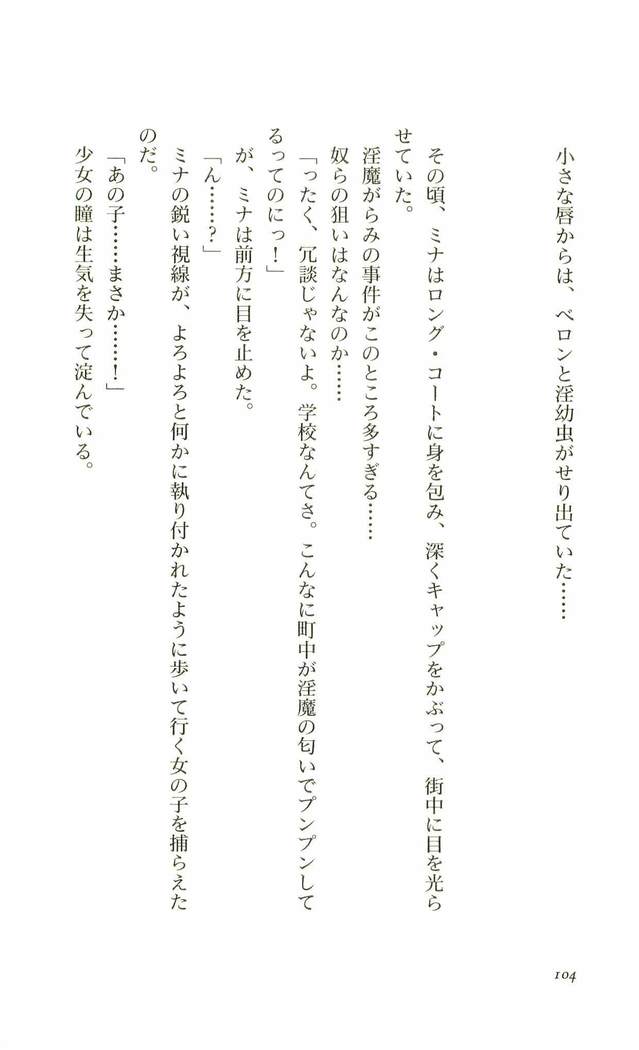 小さな唇からは、ベロンと淫幼虫がせり出ていた……
その頃、ミナはロング・コートに身を包み、深くキャップをかぶって、街中に目を光ら
せていた。
淫魔がらみの事件がこのところ多すぎる……
奴らの狙いはなんなのか……
「ったく、冗談じゃないよ。学校なんてさ。こんなに町中が淫魔の匂いでプンプンして
るってのにっ！」
が、ミナは前方に目を止めた。
「ん……？」
ミナの鋭い視線が、よろよろと何かに執り付かれたように歩いて行く女の子を捕らえた
のだ。
「あの子……まさか……！」
少女の瞳は生気を失って淀んでいる。
104